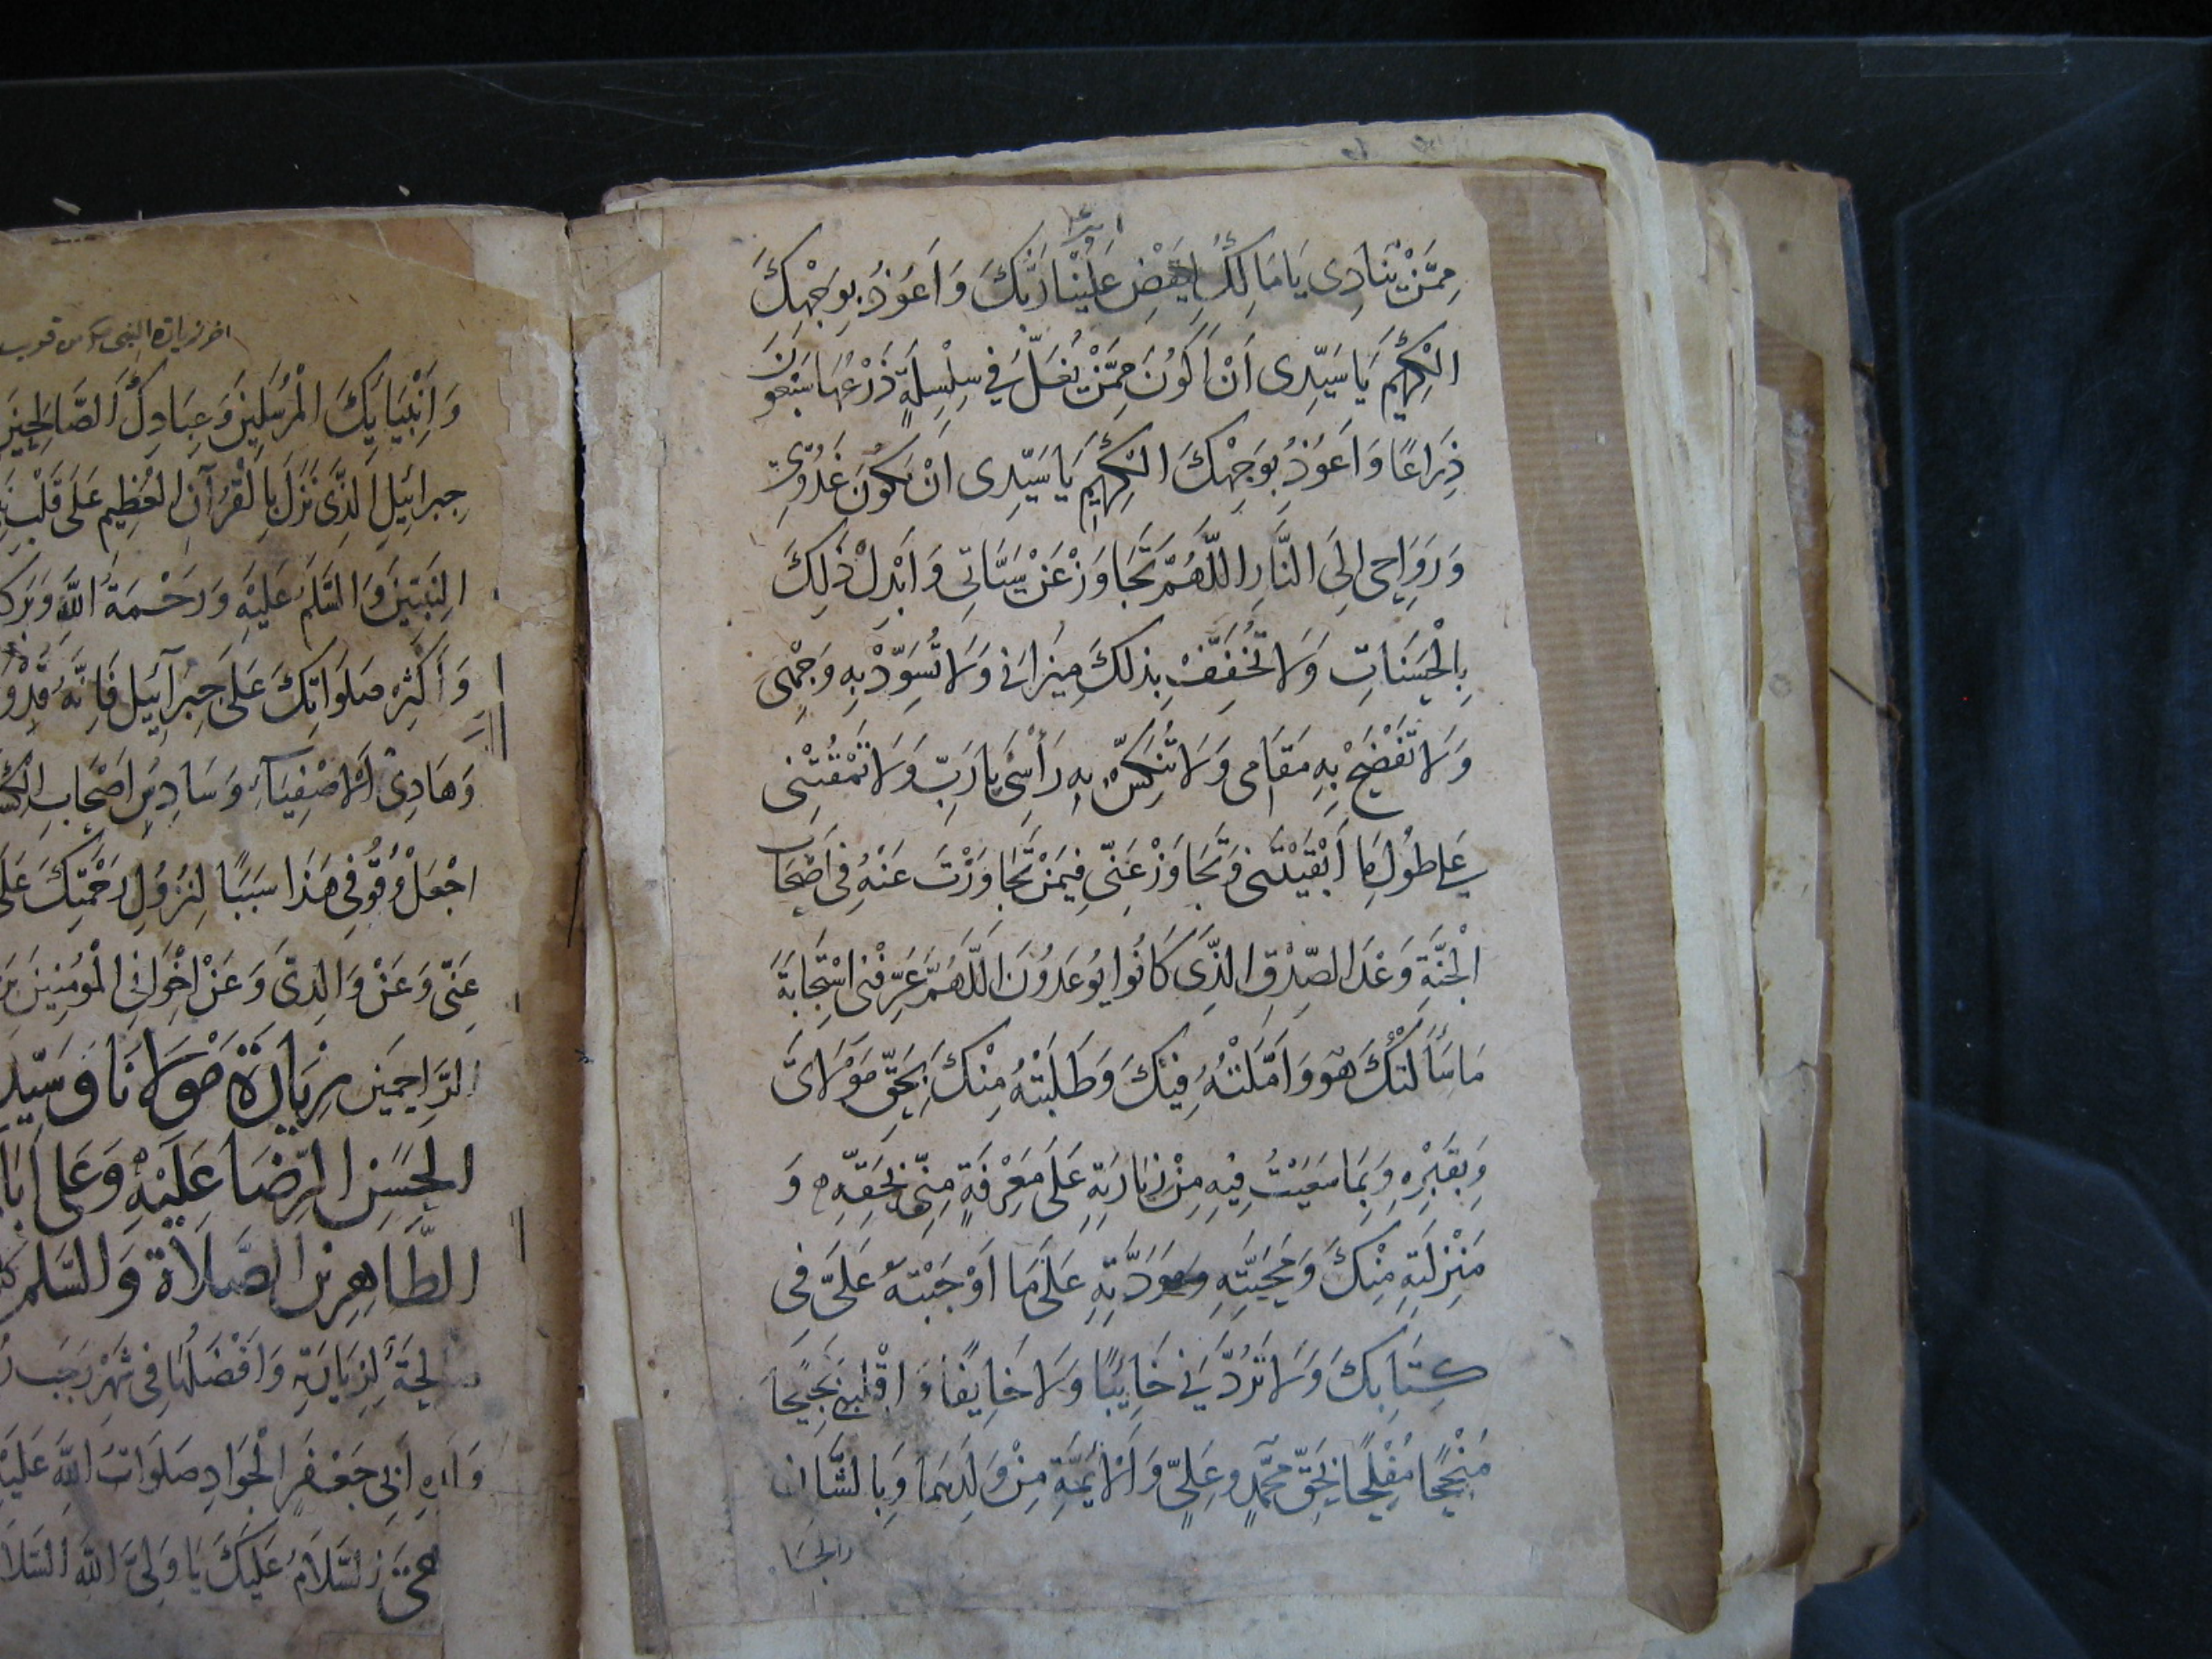 مِمَّنْ يُنَادِى يَا مَالِكُ لِيَقْضِ عَلَيْنَا رَبُّكَ وَاَعُوْذُ بِوَجْهِكَ
الْكَرِيْمِ يَا سَيِّدِى اَنْ اَكُوْنَ مِمَّنْ يُغَلُّ فِي سِلْسِلَةٍ ذَرْعُهَا سَبْعُوْنَ
ذِرَاعًا وَاَعُوْذُ بِوَجْهِكَ الْكَرِيْمِ يَا سَيِّدِى اَنْ يَكُوْنَ غُدُوِّى
وَرَوَاحِى اِلَى النَّارِ اللّٰهُمَّ تَجَاوَزْ عَنْ سَيِّاٰتِى وَاَبْدِلْ ذٰلِكَ
بِالْحَسَنَاتِ وَلَا تُخَفِّفْ بِذٰلِكَ مِيْزَانِى وَلَا تُسَوِّدْ بِهِ وَجْهِى
وَلَا تَفْضَحْ بِهِ مَقَامِى وَلَا تُنَكِّسْ بِهِ رَأْسِى يَا رَبِّ وَلَا تَمْقُتْنِى
عَلَى طُوْلِ مَا اَبْقَيْتَنِى وَتَجَاوَزْ عَنِّى فِيْمَنْ تَجَاوَزْتَ عَنْهُ فِى اَصْحَابِ
الْجَنَّةِ وَعْدَ الصِّدْقِ الَّذِى كَانُوا يُوعَدُوْنَ اللّٰهُمَّ عَرِّفْنِى اسْتِجَابَةَ
مَا سَأَلْتُكَ هُوَ وَاَمَّلْتُهُ فِيْكَ وَطَلَبْتُهُ مِنْكَ بِحَقِّ مَوْلَاىَ
وَبِقَبْرِهِ وَبِمَا سَعَيْتُ فِيْهِ مِنْ زِيَارَتِهِ عَلَى مَعْرِفَةٍ مِنِّى بِحَقِّهِ وَ
مَنْزِلَتِهِ مِنْكَ وَمَحَبَّتِهِ وَمَوَدَّتِهِ عَلَى مَا اَوْجَبْتَهُ عَلَىَّ فِى
كِتَابِكَ وَلَا تَرُدَّنِى خَائِبًا وَلَا خَائِفًا وَاقْلِبْنِى
مُنْجِحًا مُفْلِحًا بِحَقِّ مُحَمَّدٍ وَعَلِىٍّ وَالْاَئِمَّةِ مِنْ وَلَدِهِمَا وَبِالشَّانِ
اخر زيارة النبى ص من قريب
وَاَنْبِيَائِكَ الْمُرْسَلِيْنَ وَعِبَادِكَ الصَّالِحِيْنَ
جبرائيل الَّذِى نَزَلَ بِالْقُرْآنِ الْعَظِيْمِ عَلَى قَلْبِ
النَّبِيِّيْنَ وَالسَّلَمُ عَلَيْهِ وَرَحْمَةُ اللهِ
وَاَكْثِرْ صَلَوَاتِكَ عَلَى جِبْرَآئِيْلَ فَاِنَّهُ
وَهَادِىْ الْاَصْفِيَآءِ وَسَادِسِ اَصْحَابِ
اجْعَلْ وُقُوْفِى هٰذَا سَبَبًا لِنُزُوْلِ رَحْمَتِكَ
عَنِّى وَعَنْ وَالِدَىَّ وَعَنْ اِخْوَانِى الْمُوْمِنِيْنَ
الرَّاحِمِيْنَ زِيَارَةُ مَوْلَانَا وَسَيِّدِ
الْحَسَنِ الرِّضَا عَلَيْهِ وَعَلَى
الطَّاهِرِيْنَ الصَّلَاةُ وَالسَّلَمُ
لِزِيَارَتِهِ وَاَفْضَلُهَا فِى شَهْرِ رَجَب
اَبِى جَعْفَرٍ الْجَوَادِ صَلَوَاتُ اللهِ
السَّلَامُ عَلَيْكَ يَا وَلِىَّ اللهِ